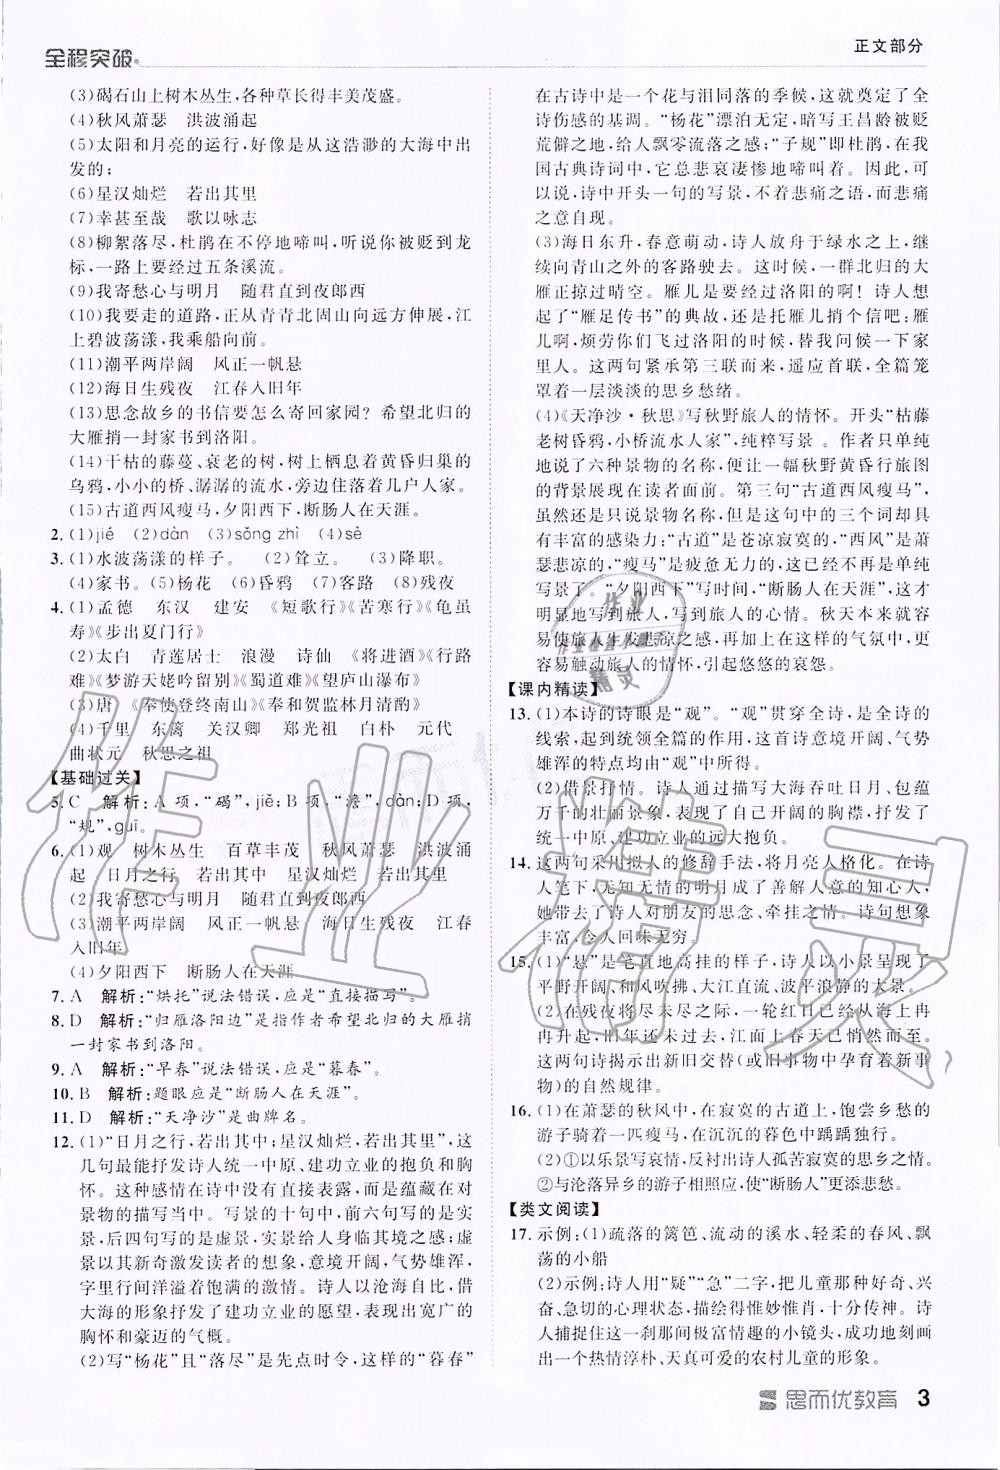 全程突破
正文部分
(3)碣石山上树木丛生,各种草长得丰美茂盛。
(4)秋风萧瑟 洪波涌起
(5)太阳和月亮的运行,好像是从这浩渺的大海中出
发的;
(6)星汉灿烂 若出其里
(7)幸甚至哉 歌以咏志
(8)柳絮落尽,杜鹃在不停地啼叫,听说你被贬到龙
标,一路上要经过五条溪流。
(9)我寄愁心与明月 随君直到夜郎西
(10)我要走的道路,正从青青北固山向远方伸展,江
上碧波荡漾,我乘船向前。
(11)潮平两岸阔 风正一帆悬
(12)海日生残夜 江春入旧年
(13)思念故乡的书信要怎么寄回家园?希望北归的
大雁捎一封家书到洛阳。
(14)干枯的藤蔓、衰老的树,树上落着黄昏归巢的
乌鸦,小小的桥、潺潺的流水,旁边住着几户人家。
(15)古道西风瘦马,夕阳西下,断肠人在天涯。
2. (1)jié (2)dàn (3)sǒng zhì (4)sè
3. (1)水波荡漾的样子。 (2)耸立。 (3)降职。
(4)家书。 (5)杨花 (6)昏鸦 (7)客路 (8)残夜
4. (1)孟德 东汉 建安 《短歌行》《苦寒行》《龟虽
寿》《步出夏门行》
(2)太白 青莲居士 浪漫 诗仙 《将进酒》《行路
难》《梦游天姥吟留别》《蜀道难》《望庐山瀑布》
(3)唐 《奉使登终南山》《奉和贺监林月清酌》
(4)千里 东篱 关汉卿 郑光祖 白朴 元代
曲状元 秋思之祖
【基础过关】
5. C 解析:A 项,“碣”,jié;B 项,“澹”,dàn;D 项,
“规”,guī。
6. (1)观 树木丛生 百草丰茂 秋风萧瑟 洪波涌
起 日月之行 若出其中 星汉灿烂 若出其里
(2)我寄愁心与明月 随君直到夜郎西
(3)潮平两岸阔 风正一帆悬 海日生残夜 江春
入旧年
(4)夕阳西下 断肠人在天涯
7. A 解析:“烘托”说法错误,应是“直接描写”。
8. D 解析:“归雁洛阳边”是指作者希望北归的大雁捎
一封家书到洛阳。
9. A 解析:“早春”说法错误,应是“暮春”。
10. B 解析:题眼应是“断肠人在天涯”。
11. D 解析:“天净沙”是曲牌名。
12. (1)“日月之行,若出其中;星汉灿烂,若出其里”,这
几句最能抒发诗人统一中原、建功立业的抱负和胸
怀。这种感情在诗中没有直接表露,而是蕴藏在对
景物的描写当中。写景的十句中,前六句写的是实
景,后四句写的是虚景,实景给人身临其境之感;虚
景以其新奇激发读者的想象,意境开阔,气势雄浑,
字里行间洋溢着饱满的激情。诗人以沧海自比,借
大海的形象抒发了建功立业的愿望,表现出宽广的
胸怀和豪迈的气概。
(2)写“杨花”且“落尽”是先点时令,这样的“暮春”
在古诗中是一个花与泪同落的季候,这就奠定了全
诗伤感的基调。“杨花”漂泊无定,暗写王昌龄被贬
荒僻之地,给人飘零流落之感;“子规”即杜鹃,在我
国古典诗词中,它总悲哀凄惨地啼叫着。因此,可
以说,诗中开头一句的写景,不着悲痛之语,而悲痛
之意自现。
(3)海日东升,春意萌动,诗人放舟于绿水之上,继
续向青山之外的客路驶去。这时候,一群北归的大
雁正掠过晴空。雁儿是要经过洛阳的啊!诗人想
起了“雁足传书”的典故,还是托雁儿捎个信吧:雁
儿啊,烦劳你们飞过洛阳的时候,替我问候一下家
里人。这两句紧承第三联而来,遥应首联,全篇笼
罩着一层淡淡的思乡愁绪。
(4)《天净沙·秋思》写秋野旅人的情怀。开头“枯藤
老树昏鸦,小桥流水人家”,纯粹写景 。作者只单纯
地说了六种景物的名称,便让一幅秋野黄昏行旅图
的背景展现在读者面前。第三句“古道西风瘦马”,
虽然还是只说景物名称,但是这句中的三个词却具
有丰富的感染力:“古道”是苍凉寂寞的,“西风”是萧
瑟悲凉的,“瘦马”是疲惫无力的,这已经不再是单纯
写景了。“夕阳西下”写时间,“断肠人在天涯”,这才
明显地写到旅人,写到旅人的心情。秋天本来就容
易使旅人生发悲凉之感,再加上在这样的气氛中,更
容易触动旅人的情怀,引起悠悠的哀怨。
【课内精读】
13. (1)本诗的诗眼是“观”。“观”贯穿全诗,是全诗的
线索,起到统领全篇的作用,这首诗意境开阔、气势
雄浑的特点均由“观”中所得。
(2)借景抒情。诗人通过描写大海吞吐日月、包蕴
万千的壮丽景象,表现了自己开阔的胸襟,抒发了
统一中原、建功立业的远大抱负。
14. 这两句采用拟人的修辞手法,将月亮人格化。在诗
人笔下,无知无情的明月成了善解人意的知心人,
她带去了诗人对朋友的思念、牵挂之情。诗句想象
丰富,令人回味无穷。
15. (1)“悬”是笔直地高挂的样子,诗人以小景呈现了
平野开阔和风吹拂、大江直流、波平浪静的大景。
(2)在残夜将尽未尽之际,一轮红日已经从海上冉
冉升起,旧年还未过去,江面上春天已悄然而至。
这两句诗揭示出新旧交替(或旧事物中孕育着新事
物)的自然规律。
16. (1)在萧瑟的秋风中,在寂寞的古道上,饱尝乡愁的
游子骑着一匹瘦马,在沉沉的暮色中踽踽独行。
(2)①以乐景写哀情,反衬出诗人孤苦寂寞的思乡之情。
②与沦落异乡的游子相照应,使“断肠人”更添悲愁。
【类文阅读】
17. 示例:(1)疏落的篱笆、流动的溪水、轻柔的春风、飘
荡的小船
(2)示例:诗人用“疑”“急”二字,把儿童那种好奇、兴
奋、急切的心理状态,描绘得惟妙惟肖,十分传神。诗
人捕捉住这一刹那间极富情趣的小镜头,成功地刻画
出一个热情淳朴、天真可爱的农村儿童的形象。
思而优教育 3
作业精灵